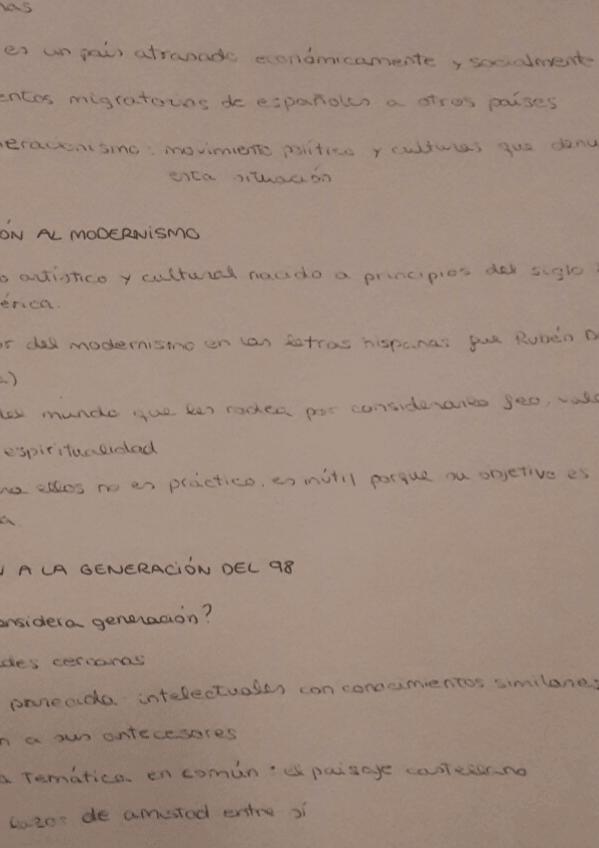 nas
es un país atrasado económicamente y socialmente
entos migratorios de españoles a otros países
eracionismo: movimiento político y cultural que denu
esta situación
ÓN AL MODERNISMO
o artístico y cultural nacido a principios del siglo
érica.
or del modernismo en las letras hispanas fue Rubén D
a)
del mundo que les rodea por considerarlo feo, vulg
espiritualidad
ra ellos no es práctico, es inútil porque su objetivo es
a
N A LA GENERACIÓN DEL 98
onsidera generación?
ades cercanas
parecida: intelectuales con conocimientos similares
n a sus antecesores
a Temática en común: el paisaje castellano
lazos de amistad entre sí